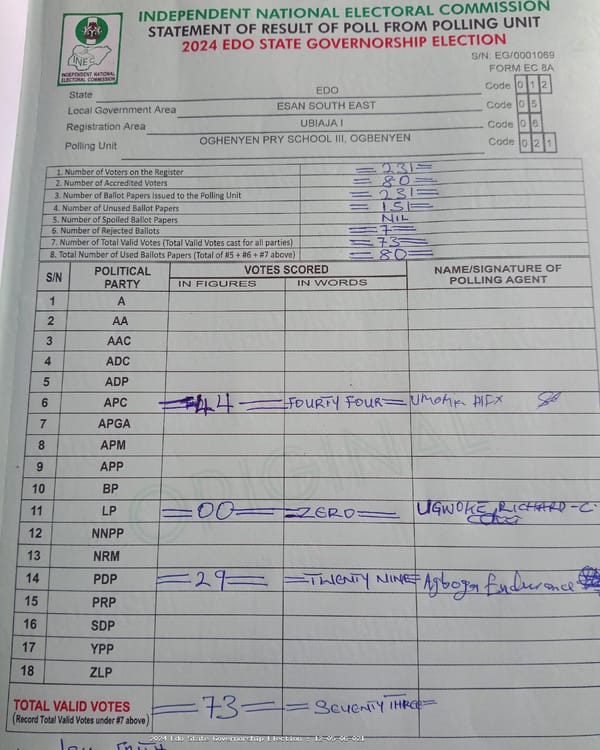 INDEPENDENT NATIONAL ELECTORAL COMMISSION
STATEMENT OF RESULT OF POLL FROM POLLING UNIT
2024 EDO STATE GOVERNORSHIP ELECTION
INEC
INDEPENDENT NATIONAL
ELECTORAL COMMISSION
S/N: EG/0001069
FORM EC 8A
State EDO Code 0 1 2
Local Government Area ESAN SOUTH EAST Code 0 5
Registration Area UBIAJA I Code 0 6
Polling Unit OGHENYEN PRY SCHOOL III, OGBENYEN Code 0 2 1
1. Number of Voters on the Register =231=
2. Number of Accredited Voters =80=
3. Number of Ballot Papers Issued to the Polling Unit =231=
4. Number of Unused Ballot Papers =151=
5. Number of Spoiled Ballot Papers NIL
6. Number of Rejected Ballots =7=
7. Number of Total Valid Votes (Total Valid Votes cast for all parties) =73=
8. Total Number of Used Ballots Papers (Total of #5 + #6 + #7 above) =80=
S/N POLITICAL PARTY VOTES SCORED NAME/SIGNATURE OF POLLING AGENT
IN FIGURES IN WORDS
1 A
2 AA
3 AAC
4 ADC
5 ADP
6 APC =44= =FOURTY FOUR=
7 APGA
8 APM
9 APP
10 BP
ORIGINAL
11 LP =00= =ZERO= UGWOKE RICHARD-C.
12 NNPP
13 NRM
14 PDP =29= =TWENTY NINE= Agboga Endurance
15 PRP
16 SDP
17 YPP
18 ZLP
TOTAL VALID VOTES =73= =SEVENTY THREE=
(Record Total Valid Votes under #7 above)
2024 Edo State Governorship Election - 12-05-06-021